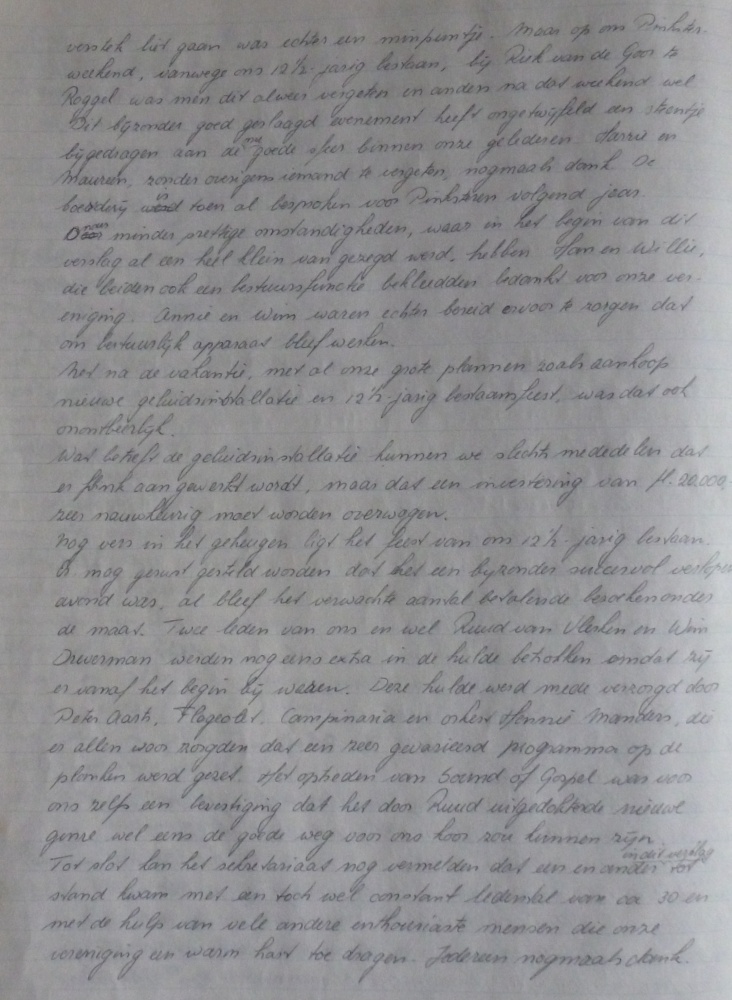 verstek liet gaan was echter een minpuntje. Maar op ons Pinkster-
weekend, vanwege ons 12½-jarig bestaan, bij Riek van de Goor te
Roggel was men dit alweer vergeten en anders na dat weekend wel
Dit bijzonder goed geslaagd evenement heeft ongetwijfeld een steentje
bijgedragen aan de goede sfeer binnen onze gelederen. Harrie en
Maureen, zonder overigens iemand te vergeten, nogmaals dank. De
boerderij toen al besproken voor Pinksteren volgend jaar.
minder prettige omstandigheden, waar in het begin van dit
verslag al een heel klein van gezegd werd, hebben Han en Willie,
die beiden ook een bestuursfunctie bekleedden bedankt voor onze ver-
eniging. Annie en Wim waren echter bereid ervoor te zorgen dat
ons bestuurlijk apparaat bleef werken.
Net na de vakantie, met al onze grote plannen zoals aankoop
nieuwe geluidsinstallatie en 12½-jarig bestaansfeest, was dat ook
onontbeerlijk.
Wat betreft de geluidsinstallatie kunnen we slechts mededelen dat
er flink aan gewerkt wordt, maar dat een investering van fl. 20.000,-
zeer nauwkeurig moet worden overwogen.
Nog vers in het geheugen ligt het feest van ons 12½-jarig bestaan.
Er mag gerust gesteld worden dat het een bijzonder succesvol verlopen
avond was, al bleef het verwachte aantal betalende bezoekers onder
de maat. Twee leden van ons en wel Ruud van Vlerken en Wim
Ouwerman werden nog eens extra in de hulde betrokken omdat zij
er vanaf het begin bij waren. Deze hulde werd mede verzorgd door
Peter Aarts, Flageolet, Campinaria en orkest Hennie Manders, die
er allen voor zorgden dat een zeer gevarieerd programma op de
planken werd gezet. Het optreden van Sound of Gospel was voor
ons zelf een bevestiging dat het door Ruud uitgedokterde nieuwe
genre wel eens de goede weg voor ons koor zou kunnen zijn.
in dit verslag
Tot slot kan het sekretariaat nog vermelden dat een en ander tot
stand kwam met een toch wel constant ledental van ca 30 en
met de hulp van vele andere enthousiaste mensen die onze
vereniging een warm hart toe dragen. Iedereen nogmaals dank.